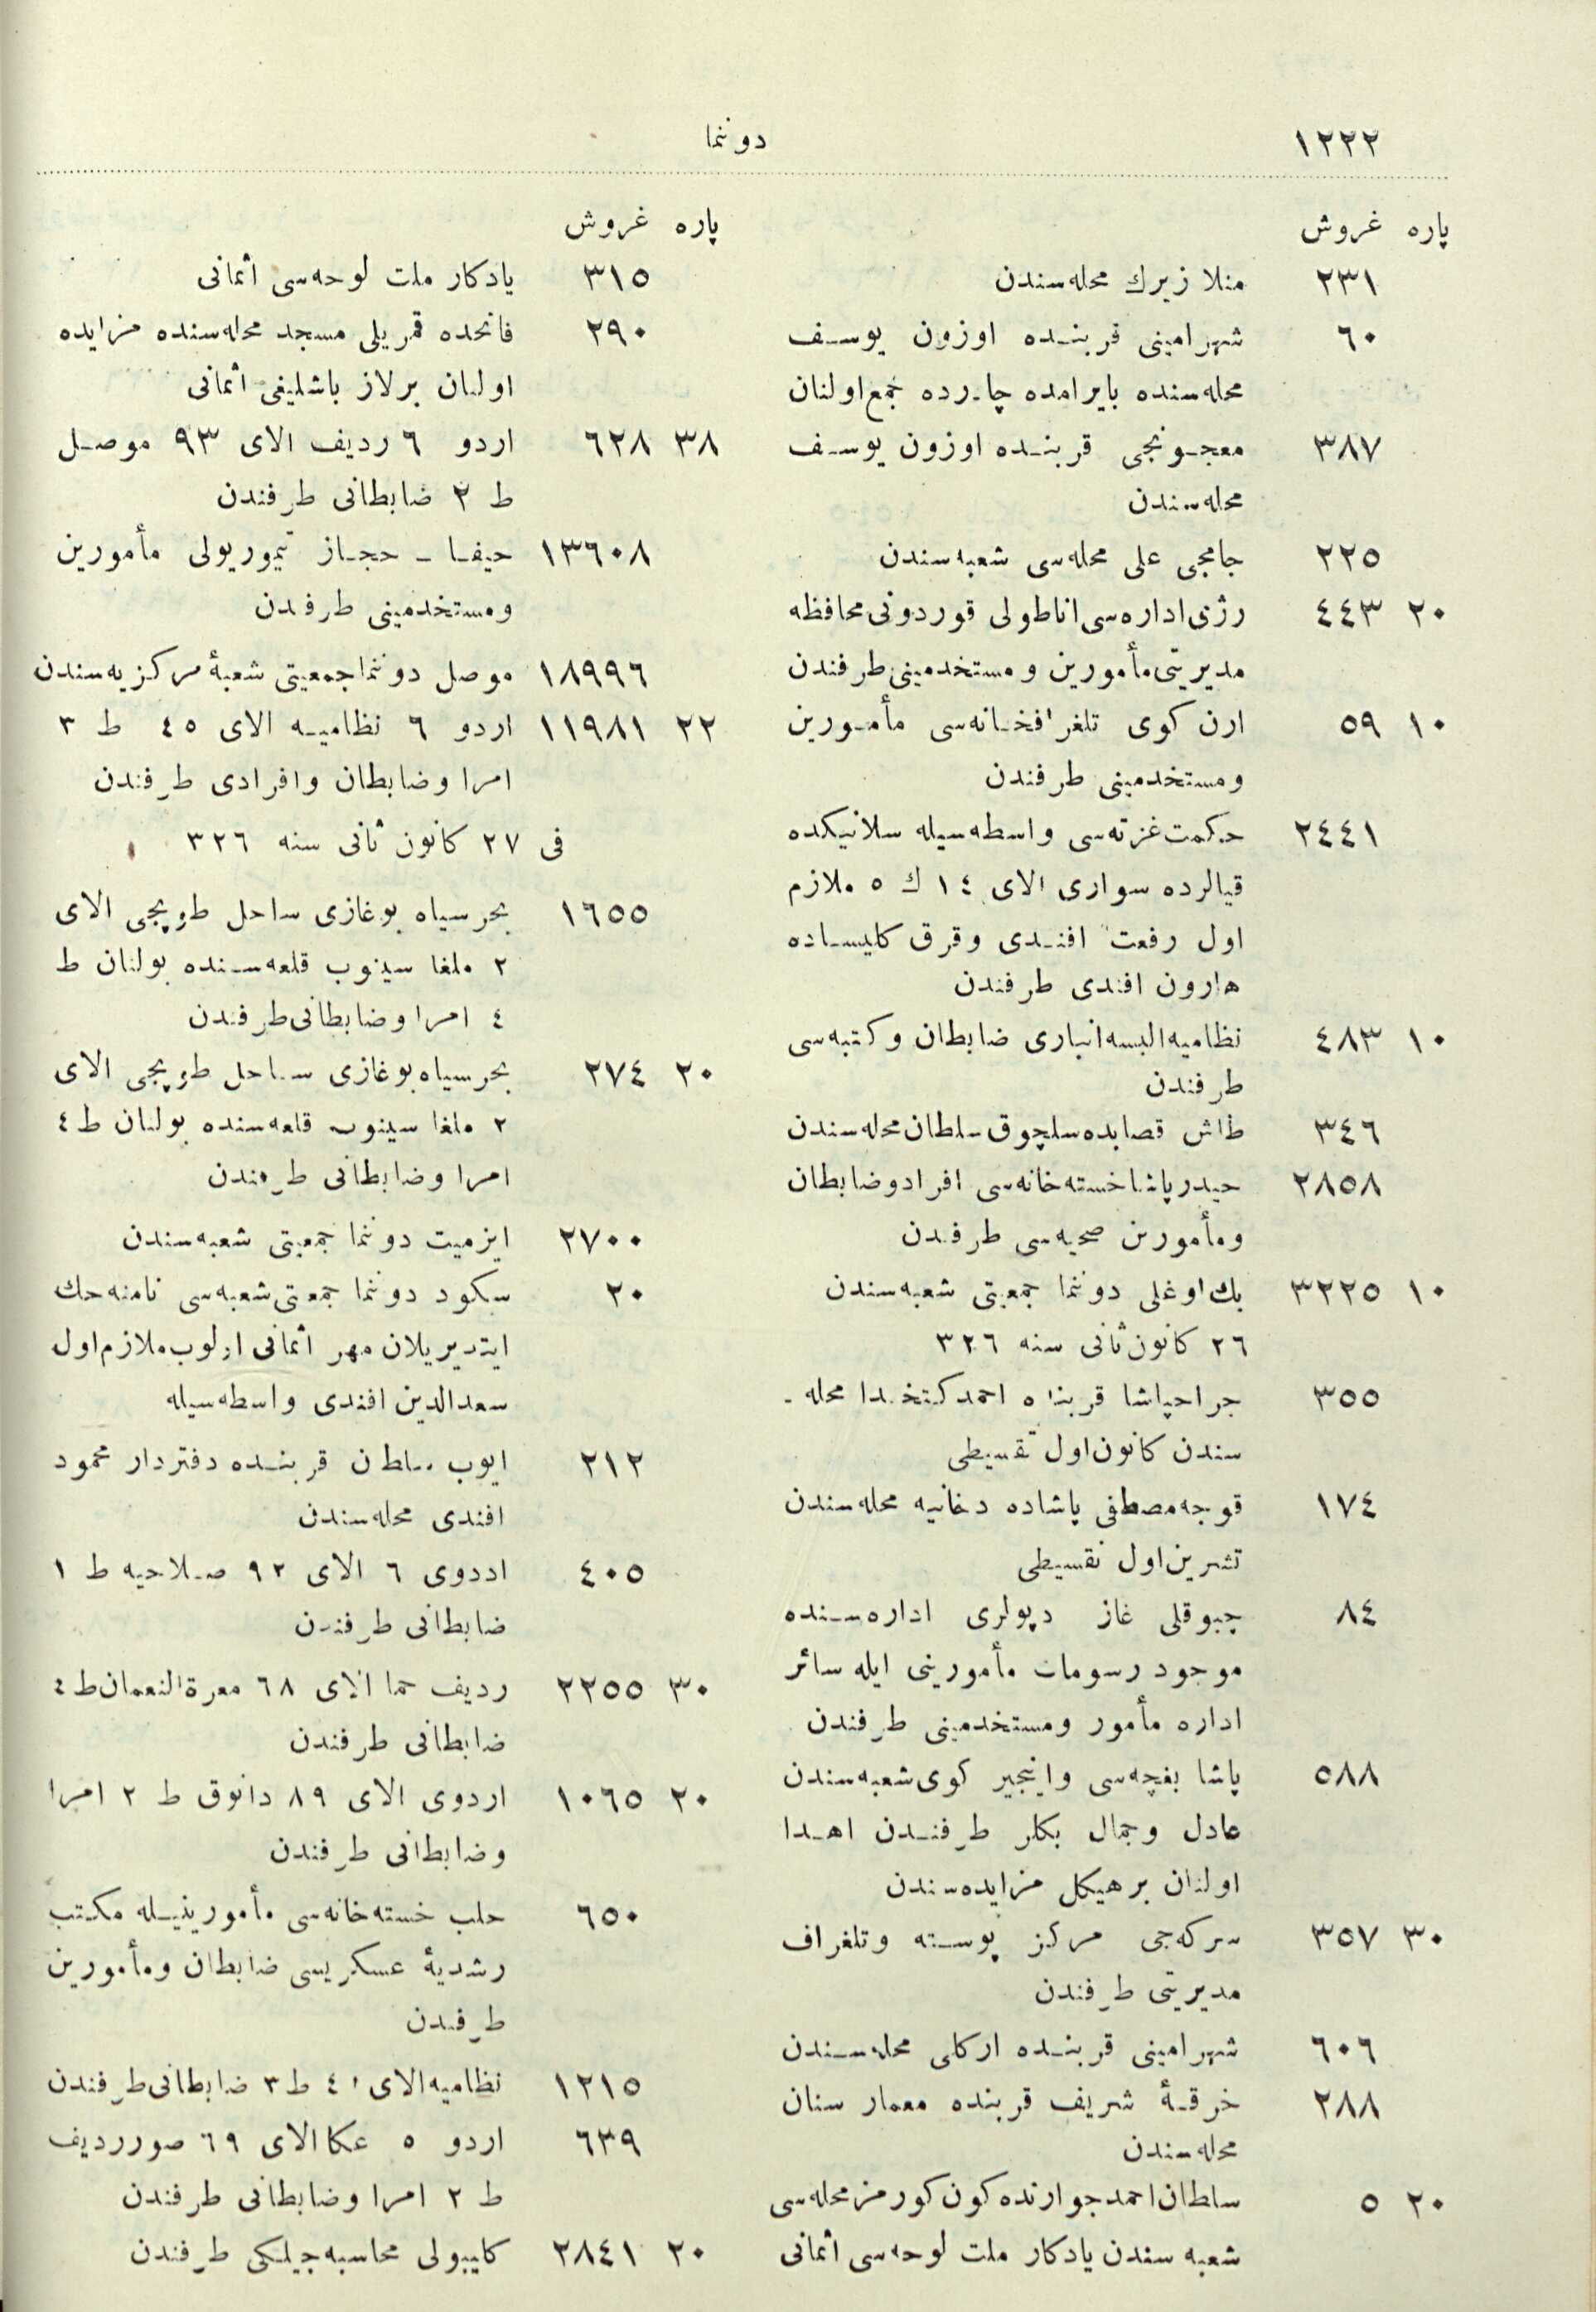 ١٢٢٢
دوننما
پاره غروش
٢٣١ منلا زيرك محله‌سندن
٦٠ شهر امينى قربنده اوزون يوسف
محله‌سنده بايرامده چارده جمع اولنان
٣٨٧ معجونجى قربنده اوزون يوسف
محله‌سندن
٢٢٥ جامجى على محله‌سى شعبه‌سندن
٢٠ ٤٤٣ رژى اداره‌سى اناطولى قوردونى محافظه
مديريتى مأمورين ومستخدمينى طرفندن
١٠ ٥٩ ارن كوى تلغرافخانه‌سى مأمورين
ومستخدمينى طرفندن
٢٤٤١ حكمت غزته‌سى واسطه‌سيله سلانيكده
قيالرده سوارى الاى ١٤ ك ٥ ملازم
اول رفعت افندى وقرق كليساده
هارون افندى طرفندن
١٠ ٤٨٣ نظاميه البسه انبارى ضابطان وكتبه‌سى
طرفندن
٣٤٦ طاش قصابده سلچوق سلطان محله‌سندن
٢٨٥٨ حيدر پاشا خسته‌خانه‌سى افراد وضابطان
ومأمورين صحيه‌سى طرفندن
١٠ ٣٢٢٥ بك اوغلى دوننما جمعيتى شعبه‌سندن
٢٦ كانون ثانى سنه ٣٢٦
٣٥٥ جراحپاشا قربنده احمد كتخدا محله-
سندن كانون اول تقسيطى
١٧٤ قوجه مصطفى پاشاده دخانيه محله‌سندن
تشرين اول تقسيطى
٨٤ چبوقلى غاز دپولرى اداره‌سنده
موجود رسومات مأمورينى ايله سائر
اداره مأمور ومستخدمينى طرفندن
٥٨٨ پاشا بغچه‌سى واينجير كوى شعبه‌سندن
عادل وجمال بكلر طرفندن اهدا
اولنان بر هيكل مزايده‌سندن
٣٠ ٣٥٧ سركه‌جى مركز پوسته وتلغراف
مديريتى طرفندن
٦٠٦ شهر امينى قربنده اركلى محله‌سندن
٢٨٨ خرقۀ شريف قربنده معمار سنان
محله‌سندن
٢٠ ٥ سلطان احمد جوارنده كون كورمز محله‌سى
شعبه سندن يادكار ملت لوحه‌سى اثمانى
پاره غروش
٣١٥ يادكار ملت لوحه‌سى اثمانى
٢٩٠ فاتحده قمريلى مسجد محله‌سنده مزايده
اولنان برلاز باشليغى اثمانى
٣٨ ٦٢٨ اردو ٦ رديف الاى ٩٣ موصل
ط ٢ ضابطانى طرفندن
١٣٦٠٨ حيفا - حجاز تيموريولى مأمورين
ومستخدمينى طرفندن
١٨٩٩٦ موصل دوننما جمعيتى شعبۀ مركزيه‌سندن
٢٢ ١١٩٨١ اردو ٦ نظاميه الاى ٤٥ ط ٣
امرا وضابطان وافرادى طرفندن
فى ٢٧ كانون ثانى سنه ٣٢٦
١٦٥٥ بحر سياه بوغازى ساحل طوپجى الاى
٢ ملغا سينوب قلعه‌سنده بولنان ط
٤ امرا وضابطانى طرفندن
٢٠ ٢٧٤ بحر سياه بوغازى ساحل طوپجى الاى
٢ ملغا سينوب قلعه‌سنده بولنان ط ٤
امرا وضابطانى طرفندن
٢٧٠٠ ايزميت دوننما جمعيتى شعبه‌سندن
٢٠ سكود دوننما جمعيتى شعبه‌سى نامنه حك
ايتديريلان مهر اثمانى اولوب ملازم اول
سعدالدين افندى واسطه‌سيله
٢١٢ ايوب سلطان قربنده دفتردار محمود
افندى محله‌سندن
٤٠٥ اردوى ٦ الاى ٩٢ صلاحيه ط ١
ضابطانى طرفندن
٣٠ ٢٢٥٥ رديف حما الاى ٦٨ معرةالنعمان ط ٤
ضابطانى طرفندن
٢٠ ١٠٦٥ اردوى الاى ٨٩ داقوق ط ٢ امرا
وضابطانى طرفندن
٦٥٠ حلب خسته‌خانه‌سى مأمورينيله مكتب
رشديۀ عسكريسى ضابطان ومأمورين
طرفندن
١٢١٥ نظاميه الاى ٤ ط ٣ ضابطانى طرفندن
٦٣٩ اردو ٥ عكا الاى ٦٩ صور رديف
ط ٢ امرا وضابطانى طرفندن
٢٠ ٢٨٤١ كليبولى محاسبه‌جيلكى طرفندن